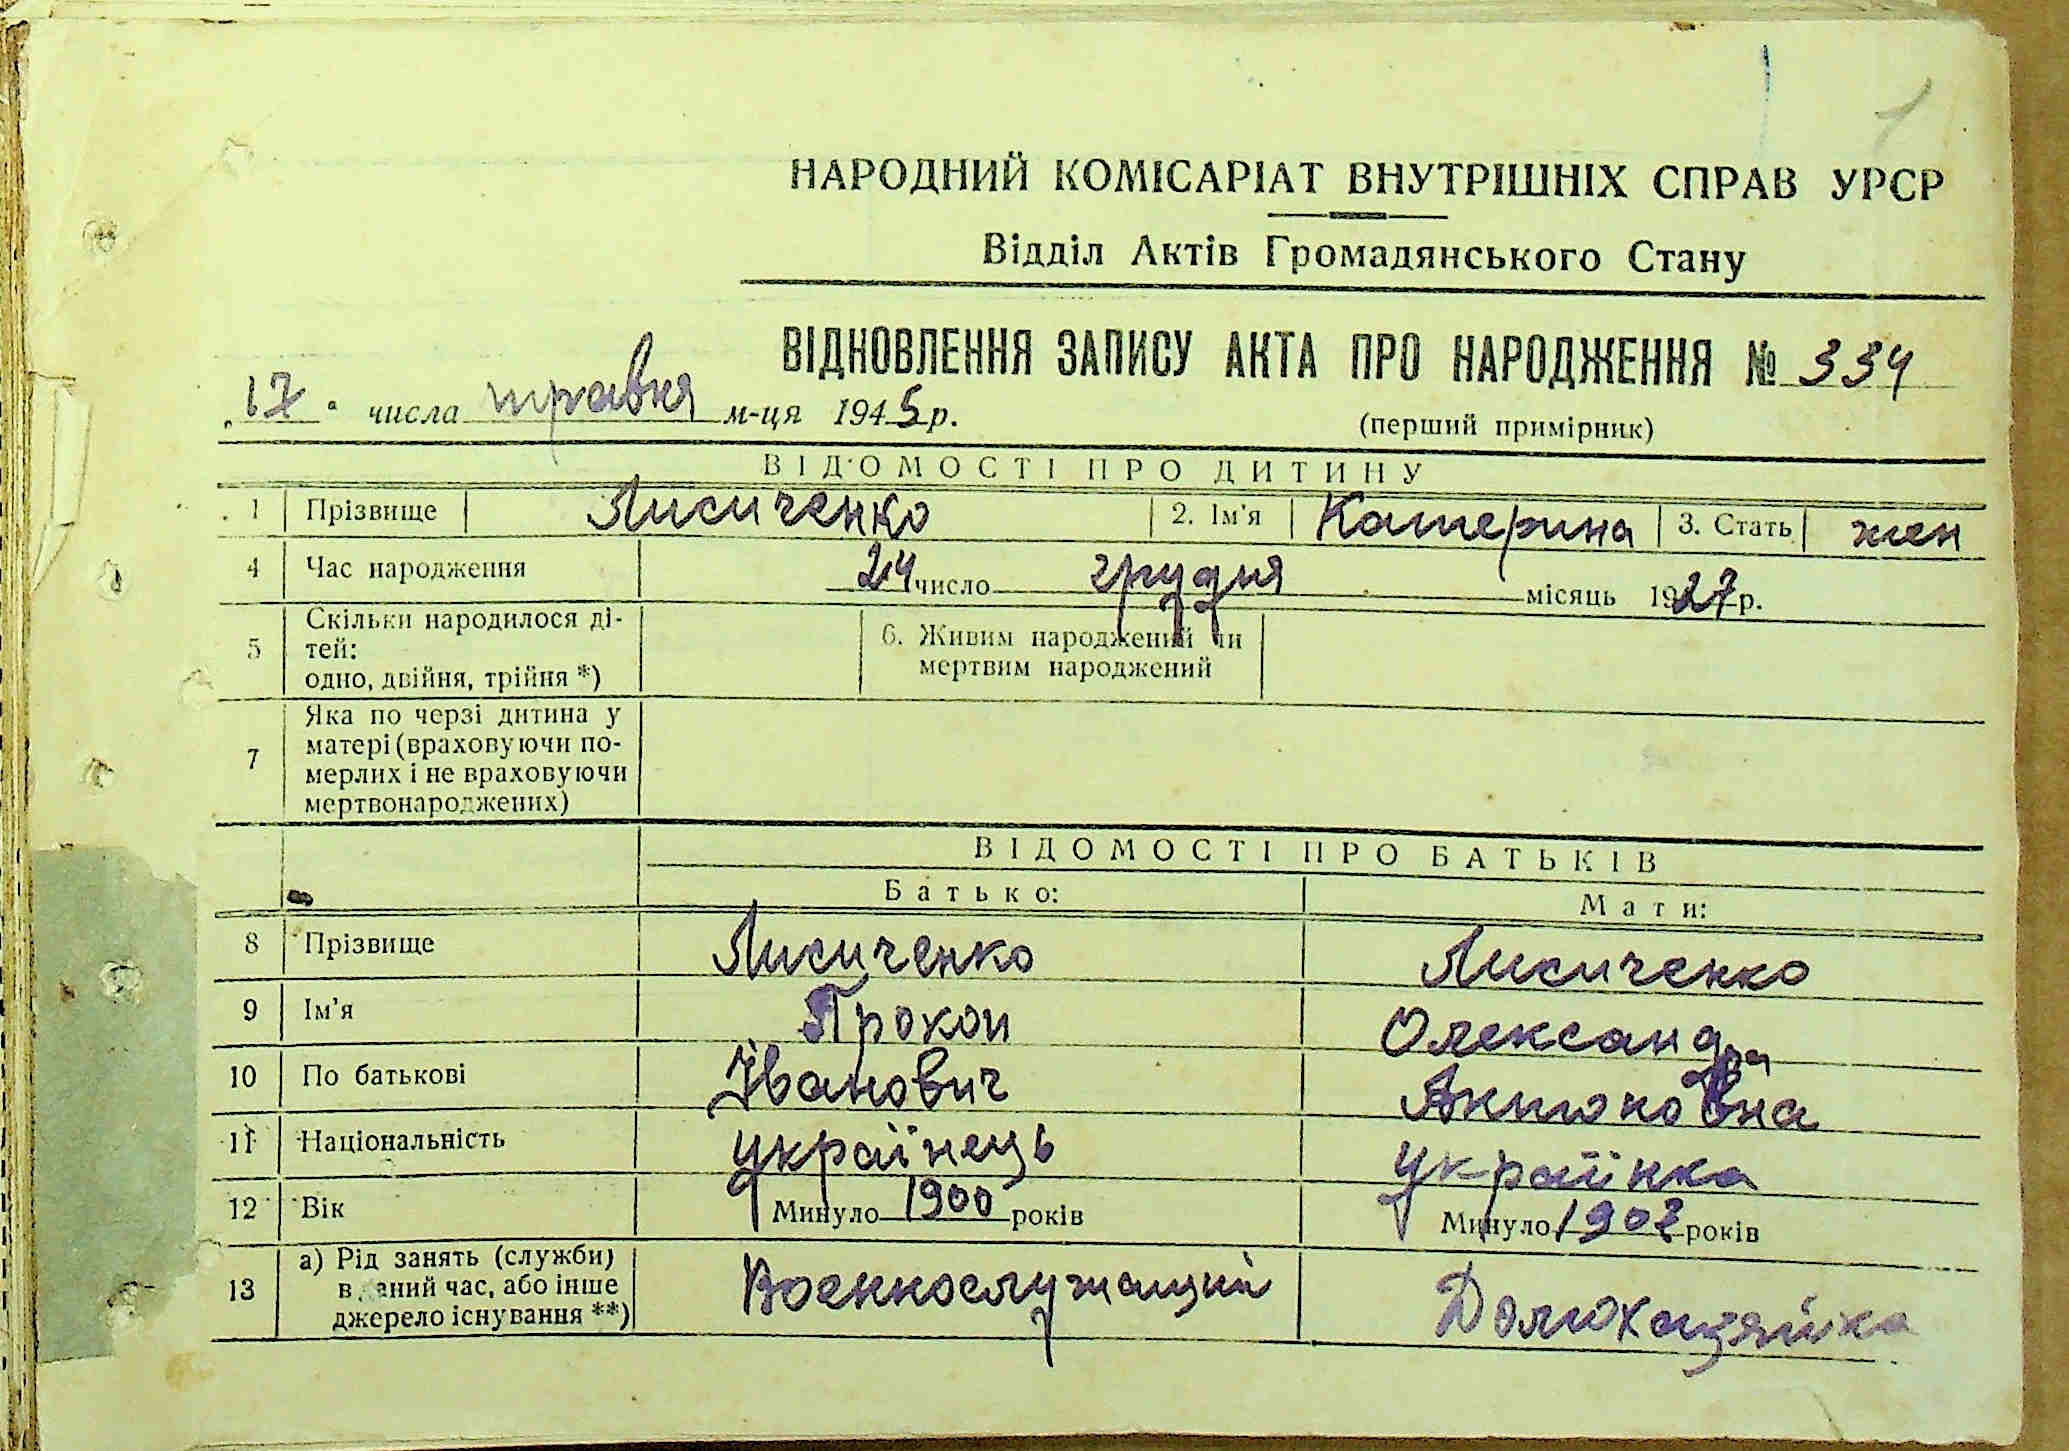 НАРОДНИЙ КОМІСАРІАТ ВНУТРІШНІХ СПРАВ УРСР
Відділ Актів Громадянського Стану
ВІДНОВЛЕННЯ ЗАПИСУ АКТА ПРО НАРОДЖЕННЯ № 334
„17" числа травня м-ця 1945 р.
(перший примірник)
ВІДОМОСТІ ПРО ДИТИНУ
1 Прізвище Лисиченко 2. Ім'я Катерина 3. Стать жен
4 Час народження 24 число грудня місяць 1927 р.
5 Скільки народилося ді-
тей:
одно, двійня, трійня *)
6. Живим народжений чи
мертвим народжений
7 Яка по черзі дитина у
матері (враховуючи по-
мерлих і не враховуючи
мертвонароджених)
ВІДОМОСТІ ПРО БАТЬКІВ
Батько: Мати:
8 Прізвище Лисиченко Лисиченко
9 Ім'я Прокоп Олександра
10 По батькові Іванович Антоновна
11 Національність українець українка
12 Вік Минуло 1900 років Минуло 1907 років
13 а) Рід занять (служби)
в даний час, або інше
джерело існування **)
Военнослужащий Домохазяйка
1